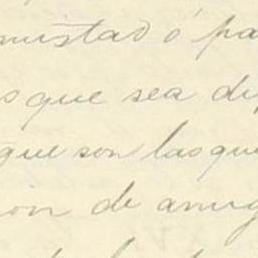 mistad ó pa
s que sea di
que son las que
on de amig